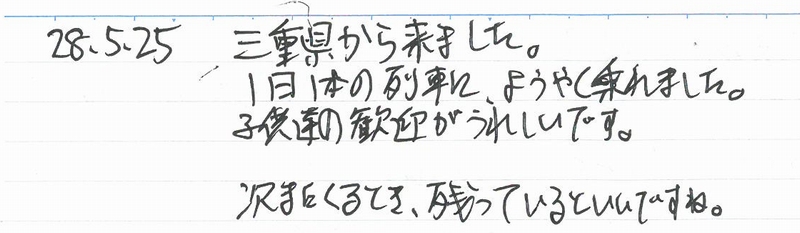 28.5.25 三重県から来ました。
1日1本の列車に、ようやく乗れました。
子供達の歓迎がうれしいです。
次またくるとき、残っているといいですね。